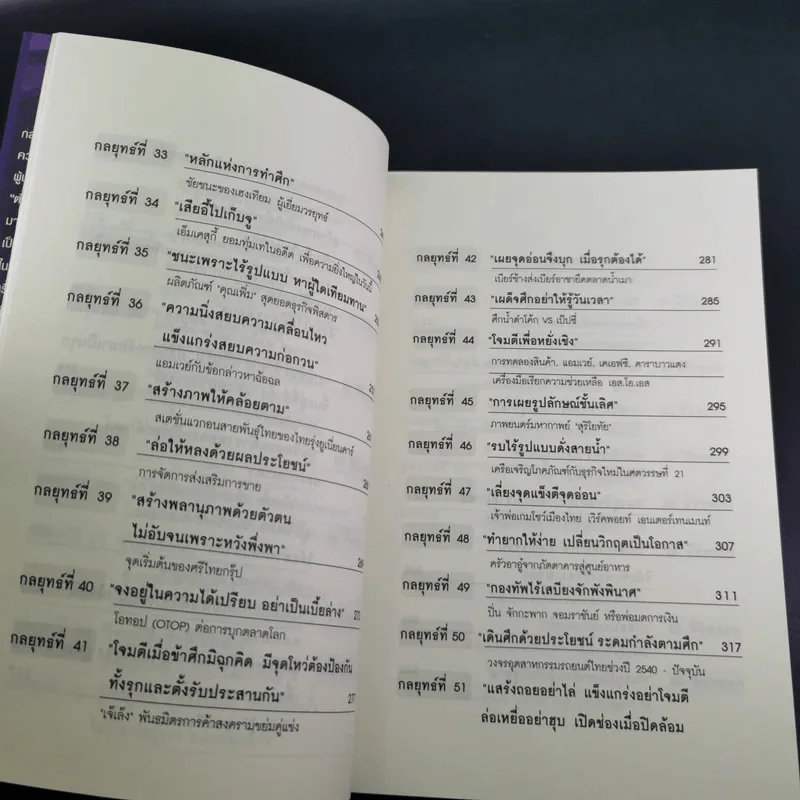 กลยุทธ์ที่ 33 "หลักแห่งการทำศึก"
ชัยชนะของเฮงเทียม ผู้เยี่ยมวรยุทธ์
กลยุทธ์ที่ 34 "เสียอี้ไปเก็บจู"
เอ็มเคสุกี้ ยอมทุ่มเทในอดีต เพื่อความยิ่งใหญ่ในวันนี้
กลยุทธ์ที่ 35 "ชนะเพราะไร้รูปแบบ หาผู้ใดเทียมทาน"
ผลิตภัณฑ์ "คุณเพิ่ม" สุดยอดธุรกิจพิสดาร
กลยุทธ์ที่ 36 "ความนิ่งสยบความเคลื่อนไหว
แข็งแกร่งสยบความก่อกวน"
แอมเวย์กับข้อกล่าวหาฉ้อฉล
กลยุทธ์ที่ 37 "สร้างภาพให้คล้อยตาม"
สเตชั่นแวกอนสายพันธุ์ไทยของไทยรุ่งยูเนี่ยนคาร์
กลยุทธ์ที่ 38 "ล่อให้หลงด้วยผลประโยชน์"
การจัดการส่งเสริมการขาย
กลยุทธ์ที่ 39 "สร้างพลานุภาพด้วยตัวตน
ไม่อับจนเพราะหวังพึ่งพา"
จุดเริ่มต้นของศรีไทยกรุ๊ป
กลยุทธ์ที่ 40 "จงอยู่ในความได้เปรียบ อย่าเป็นเบี้ยล่าง"
โอทอป (OTOP) ต่อการบุกตลาดโลก
กลยุทธ์ที่ 41 "โจมตีเมื่อข้าศึกมิฉุกคิด มีจุดโหว่ต้องป้องกัน
ทั้งรุกและตั้งรับประสานกัน" 277
"เจ๊เล้ง" พันธมิตรการค้าสงครามขย่มคู่แข่ง
กลยุทธ์ที่ 42 "เผยจุดอ่อนจึงบุก เมื่อรุกต้องได้" 281
เบียร์ช้างส่งเบียร์อาชายึดตลาดน้ำเมา
กลยุทธ์ที่ 43 "เผด็จศึกอย่าให้รู้วันเวลา" 285
ศึกน้ำดำโค้ก VS เป๊ปซี่
กลยุทธ์ที่ 44 "โจมตีเพื่อหยั่งเชิง" 291
การทดลองสินค้า, แอมเวย์, เคเอฟซี, คาราบาวแดง
เครื่องมือเรียกความช่วยเหลือ เอส.โอ.เอส
กลยุทธ์ที่ 45 "การเผยรูปลักษณ์ชั้นเลิศ" 295
ภาพยนตร์มหากาพย์ "สุริโยทัย"
กลยุทธ์ที่ 46 "รบไร้รูปแบบดั่งสายน้ำ" 299
เครือเจริญโภคภัณฑ์กับธุรกิจใหม่ในศตวรรษที่ 21
กลยุทธ์ที่ 47 "เลี่ยงจุดแข็งตีจุดอ่อน" 303
เจ้าพ่อเกมโชว์เมืองไทย เวิร์คพอยท์ เอนเตอร์เทนเมนท์
กลยุทธ์ที่ 48 "ทำยากให้ง่าย เปลี่ยนวิกฤตเป็นโอกาส" 307
ครัวอาอู๋จากภัตตาคารสู่ศูนย์อาหาร
กลยุทธ์ที่ 49 "กองทัพไร้เสบียงจักพังพินาศ" 311
ปิ่น จักกะพาก จอมราชันย์ หรือพ่อมดการเงิน
กลยุทธ์ที่ 50 "เดินศึกด้วยประโยชน์ ระดมกำลังตามศึก" 317
วงจรอุตสาหกรรมรถยนต์ไทยช่วงปี 2540 - ปัจจุบัน
กลยุทธ์ที่ 51 "แสร้งถอยอย่าไล่ แข็งแกร่งอย่าโจมตี
ล่อเหยื่ออย่าฮุบ เปิดช่องเมื่อปิดล้อม